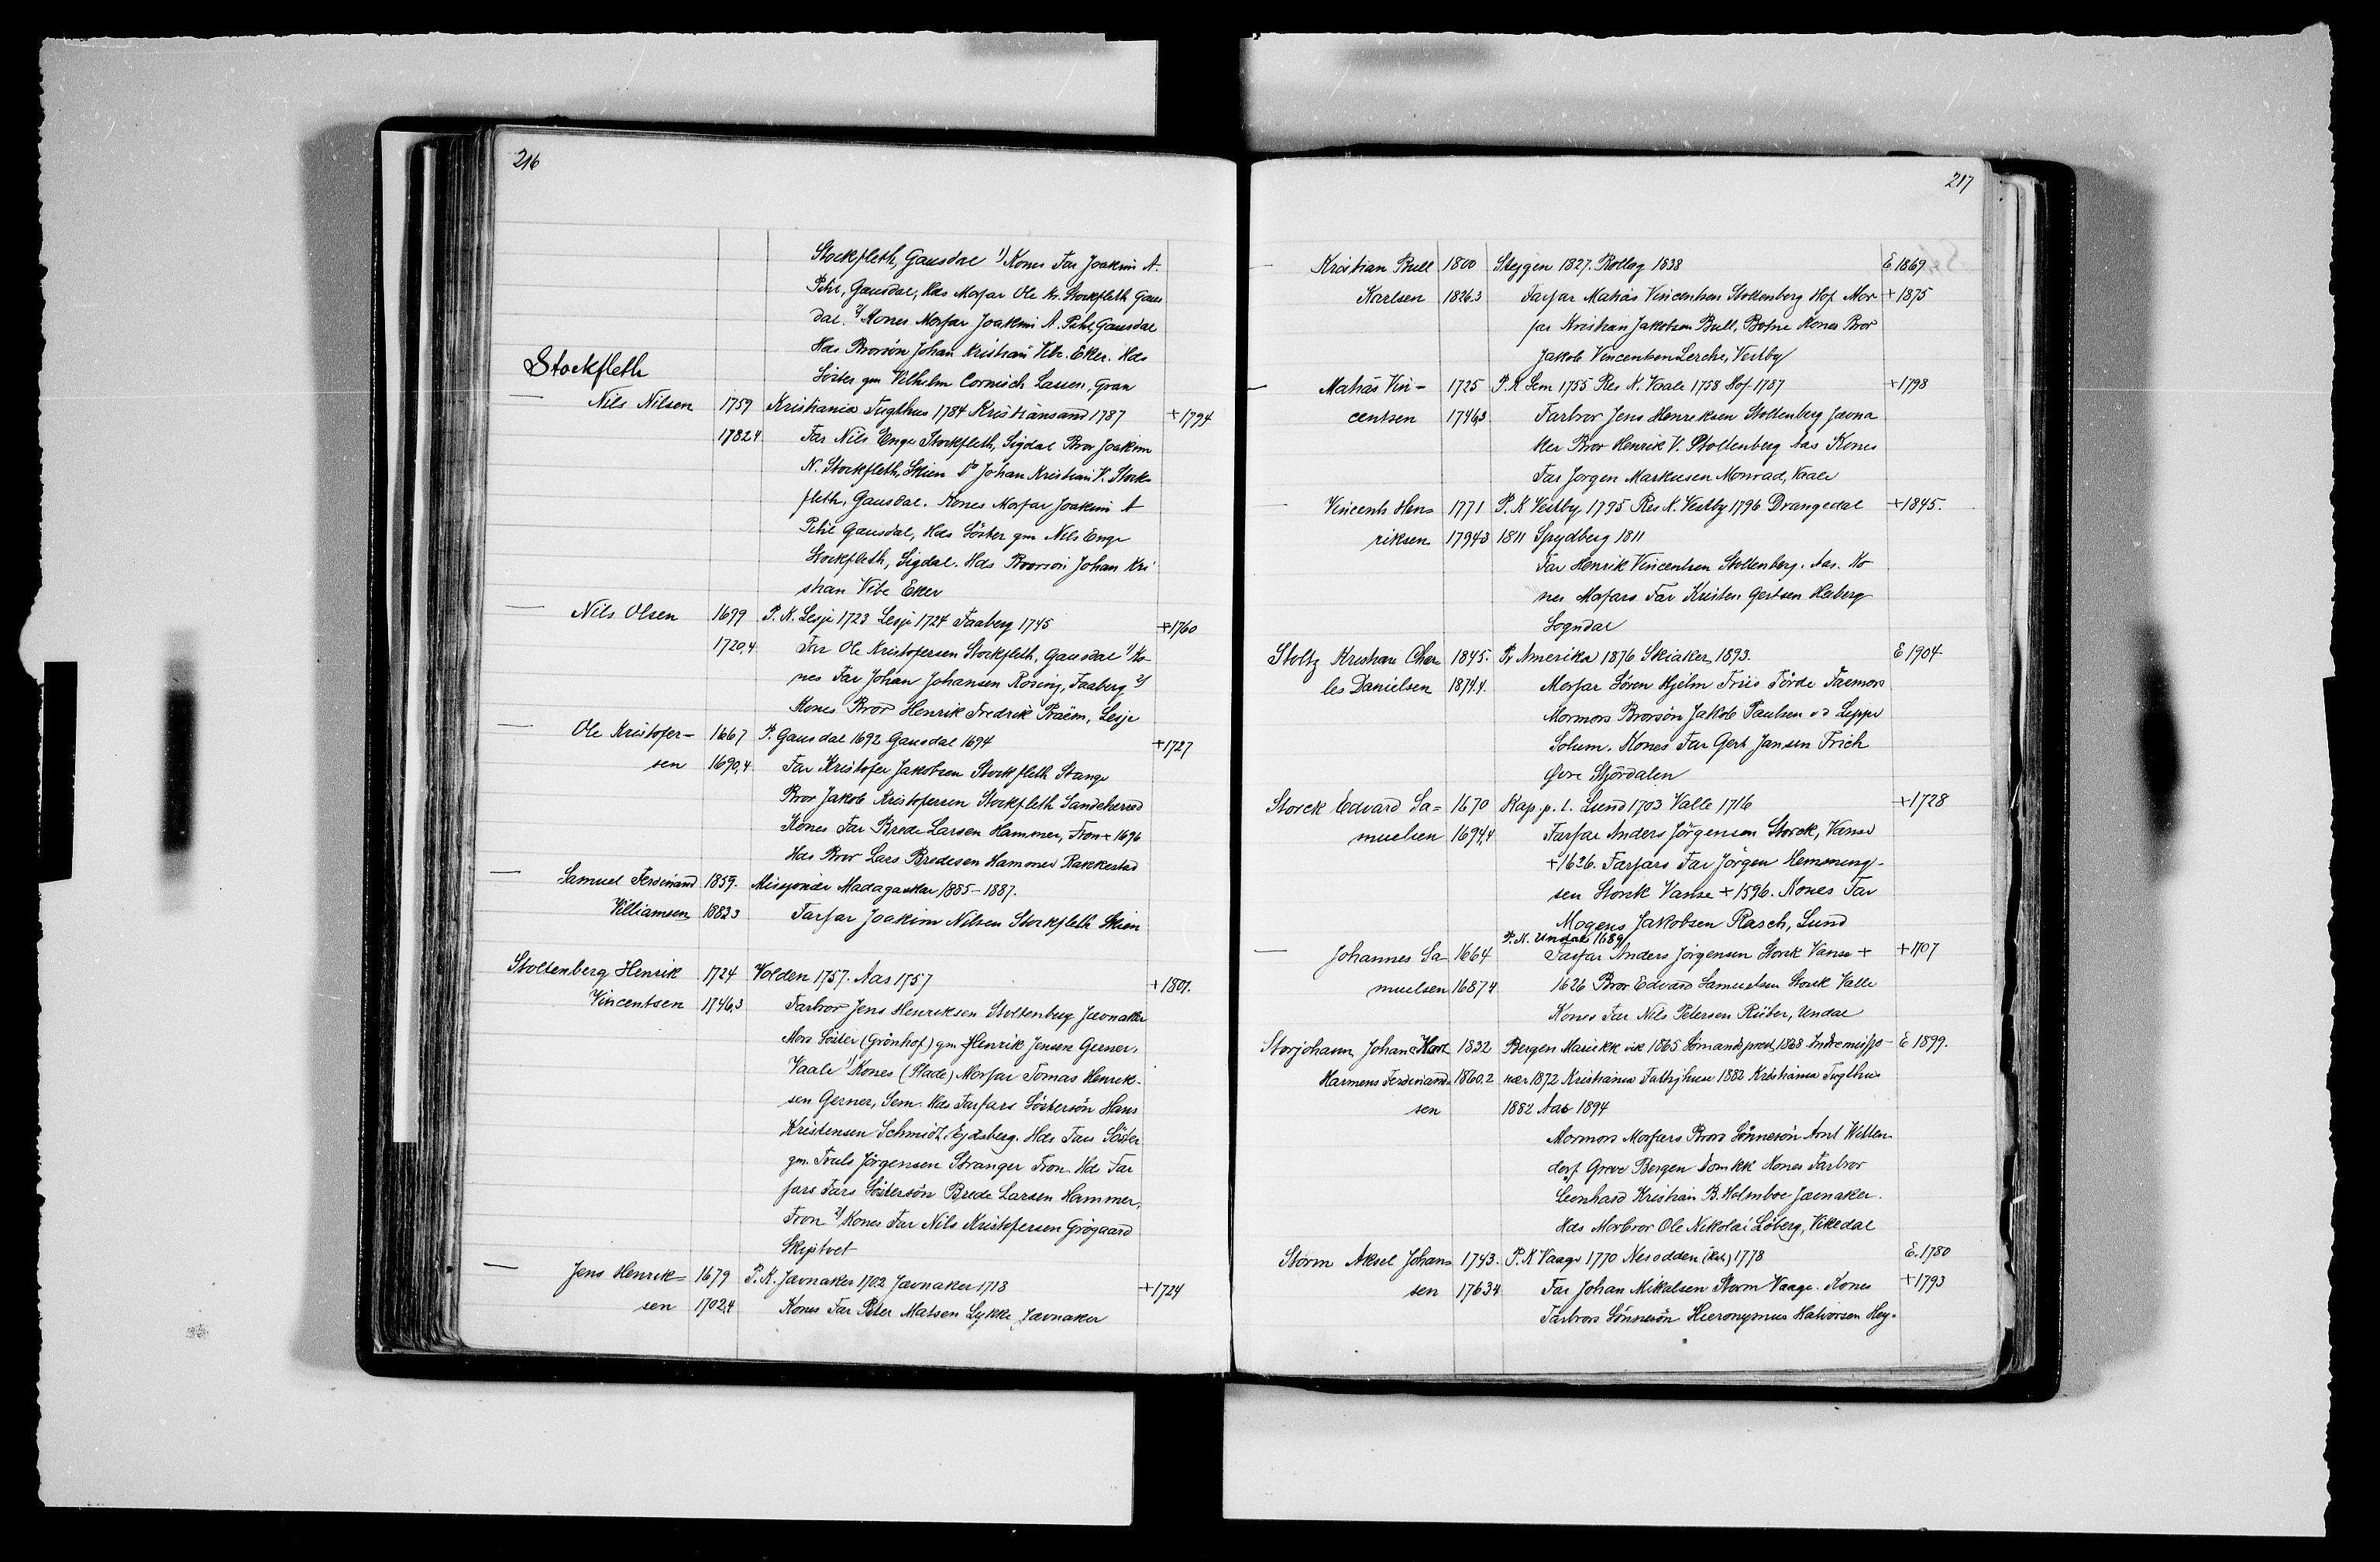 216
Stockfleth, Gausdal 1) Kones Far Joakim A.
Pihl, Gausdal, Hds Morfar Ole Kr. Stockfleth Gaus
dal. 2) Kones Morfar Joakim A. Pihl, Gausdal
Hds Brorsön Johan Kristian Vibe. Eker. Hds
Stockfleth
Söster gm Vilhelm Cornisch Lassen, Gran
— Nils Nilsen 1759 Kristiania Tugthus 1784 Kristiansand 1787 +1794
1782.4 Far Nils Enge Stockfleth, Sigdal Bror Joakim
N. Stockfleth, Skien Do Johan Kristian V. Stock-
fleth, Gausdal. Kones Morfar Joakim A
Pihl Gausdal, Hds Söster gm Nils Enge
Stockfleth, Sigdal. Hds Brorsön Johan Kri
stian Vibe Eker
— Nils Olsen 1699 P. K. Lesje 1723 Lesje 1724 Faaberg 1745 +1760
1720,4 Far Ole Kristofersen Stockfleth, Gausdal 1) Ko-
nes Far Johan Johansen Rosing, Faaberg 2)
Kones Bror Henrik Fredrik Praëm, Lesje
— Ole Kristofer- 1667 P. Gausdal 1692 Gausdal 1694 +1727
sen 1690,4 Far Kristofer Jakobsen Stockfleth Stange
Bror Jakob Kristofersen Stockfleth Sandeherred
Kones Far Brede Larsen Hammer, Fron + 1696
Hds Bror Lars Bredesen Hammer Rakkestad
— Samuel Ferdinand 1859. Missjonær Madagaskar 1885-1887.
Villiamsen 1882.3 Farfar Joakim Nilsen Stockfleth Skien
Stoltenberg Henrik 1724 Volden 1757. Aas 1757 +1801.
Vincentsen 1746,3 Farbror Jens Henriksen Stoltenberg Jævnaker
Mors Söster (Grönhof) gm Henrik Jensen Gerner,
Vaale 1) Kones (Plade) Morfar Tomas Henrik-
sen Gerner, Sem. Hds Farfars Söstersön Hans
Kristensen Schmidt, Ejdsberg. Hds Fars Söster
gm. Truls Jörgensen Stranger Fron. Hds Far
fars Fars Söstersön Brede Larsen Hammer,
Fron 2) Kones Far Nils Kristofersen Grögaard
Skiptvet
— Jens Henrik- 1679 P. K. Jævnaker 1702 Jævnaker 1718 +1724
sen 1702,4 Kones Far Peter Matsen Lykke Jævnaker
217
— Kristian Bull 1800 Stejgen 1827. Rollag 1838 E 1869
Karlsen 1826.3 Farfar Matias Vincentsen Stoltenberg Hof Mor +1875
far Kristian Jakobsen Bull, Botne Kones Bror
Jakob Vincentsen Lerche, Vestby
— Matias Vin- 1725 P. K Sem 1755 Res K. Vaale 1758 Hof 1787 +1798
centsen 1746,3 Farbror Jens Henriksen Stoltenberg Jævna
ker Bror Henrik V. Stoltenberg Aas Kones
Far Jörgen Markusen Monrad, Vaale
— Vincents Hen- 1771 P. K Vestby 1795 Res K. Vestby 1796 Drangedal +1845.
riksen 1794.3 1811 Spydberg 1811
Far Henrik Vincentsen Stoltenberg. Aas. Ko
nes Morfars Far Kristen Gertsen Heiberg
Sogndal
Stoltz Kristian Char 1845. Pr Amerika 1876 Skiaker 1893. E 1904
les Danielsen 1874.4. Morfar Sören Hjelm Friis Förde Farmors
Mormors Brorsön Jakob Paulsen v d Lippe
Solum. Kones Far Gert Jansen Frich
Övre Stjördalen
Storck Edvard Sa= 1670 Kap. p. l. Lund 1703 Valle 1716 +1728
muelsen 1694,4 Farfar Anders Jörgensen Storck, Vanse
+1626. Farfars Far Jörgen Hemming-
sen Storck Vanse + 1596. Kones Far
Mogens Jakobsen Rasch, Lund
P. K. Undal 1689
— Johannes Sa- 1664 Farfar Anders Jörgensen Storck Vanse + +1707
muelsen 1687,4 1626 Bror Edvard Samuelsen Storck Valle
Kones Far Nils Petersen Rüber, Undal
Storjohann, Johan Karl 1832 Bergen Mariekk vik 1865 Sömandspræst 1868. Indremissjo- E 1899.
Harmens Ferdinand 1860.2 nær 1872 Kristiania Fattighuse 1882 Kristiania Tugthus
sen 1882 Aas 1894
Mormors Morfars Brors Sönnesön Arnt Witten-
dorf Greve Bergen Domkk Kones Farbror
Leonhard Kristian B. Holmboe Jævnaker.
Hds Morbror Ole Nikolai Löberg, Vikedal
Storm Aksel Johan- 1743. P. K Vaage 1770 Nesodden (Kal.) 1778 E. 1780
sen 1763.4 Far Johan Mikalsen Storm Vaage. Kones +1793
Farbrors Sönnesön Hieronymus Halvorsen Hey-